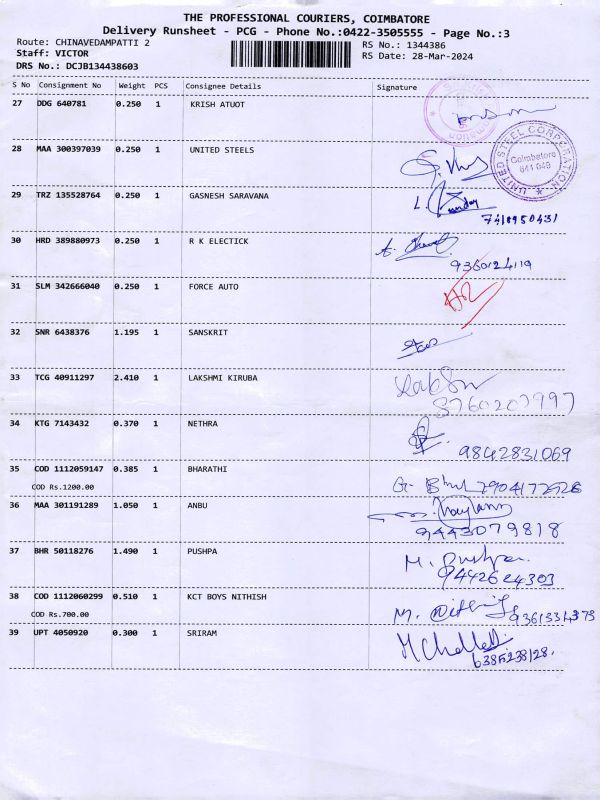 THE PROFESSIONAL COURIERS, COIMBATORE
Delivery Runsheet - PCG - Phone No.:0422-3505555 - Page No.:3
Route: CHINAVEDAMPATTI 2 RS No.: 1344386
Staff: VICTOR RS Date: 28-Mar-2024
DRS No.: DCJB134438603
S No Consignment No Weight PCS Consignee Details Signature
27 DDG 640781 0.250 1 KRISH ATUOT
28 MAA 300397039 0.250 1 UNITED STEELS
UNITED STEEL CORPORATION
Coimbatore
641 049
29 TRZ 135528764 0.250 1 GASNESH SARAVANA
7418950431
30 HRD 389880973 0.250 1 R K ELECTICK
31 SLM 342666040 0.250 1 FORCE AUTO
32 SNR 6438376 1.195 1 SANSKRIT
33 TCG 40911297 2.410 1 LAKSHMI KIRUBA
8760207997
34 KTG 7143432 0.370 1 NETHRA
9842831069
35 COD 1112059147 0.385 1 BHARATHI
COD Rs.1200.00
36 MAA 301191289 1.050 1 ANBU
9443079818
37 BHR 50118276 1.490 1 PUSHPA
M. Pushpa
9442624303
38 COD 1112060299 0.510 1 KCT BOYS NITHISH
COD Rs.700.00
39 UPT 4050920 0.300 1 SRIRAM
6385238128.